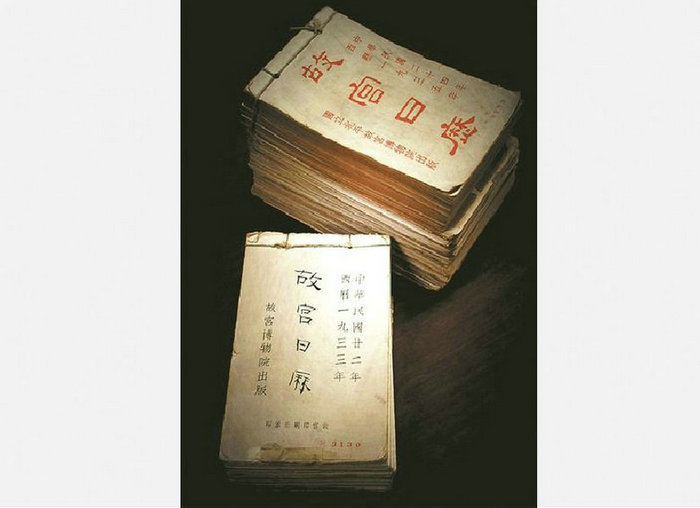 中華民國二十四年
西曆一九三五年
故宮日曆
國立北平故宮博物院出版
中華民國廿二年
西曆一九三三年
故宮日曆
故宮博物院出版
3130